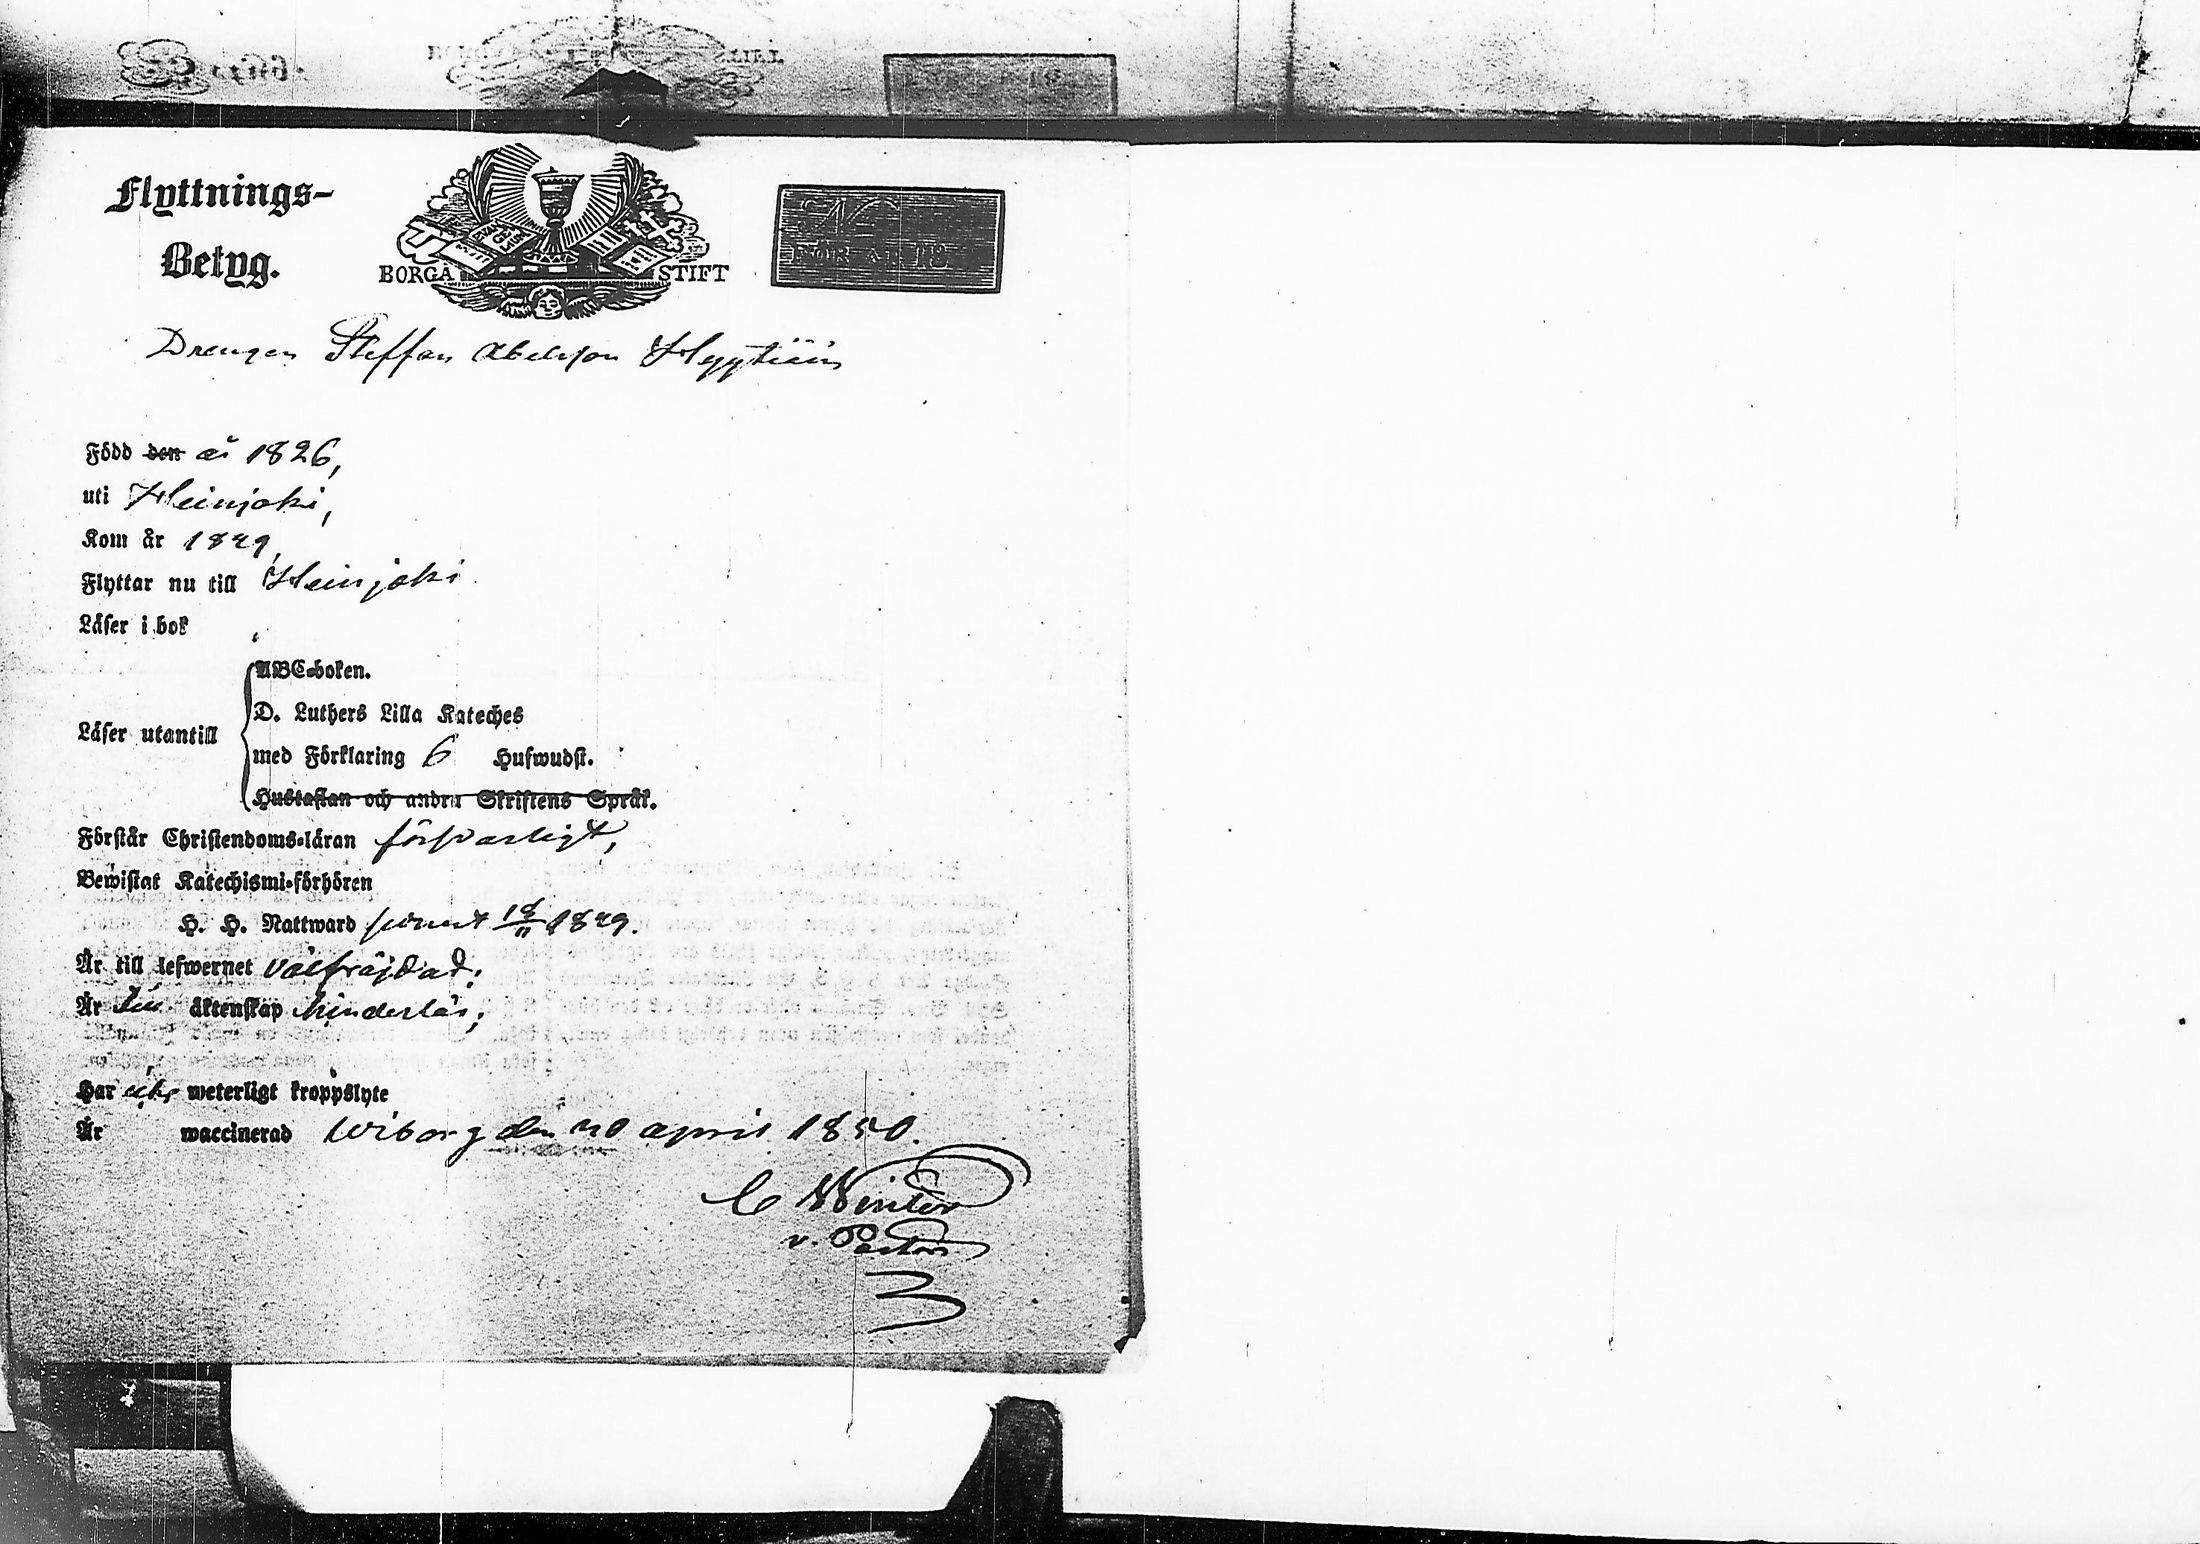 Flyttnings-
Betyg.
BORGÅ STIFT
EVAN GE LIUM
N:o
FÖR ÅR 18
Drengen Steffan Abelsson Hyytiäin
Född den år 1826,
uti Heinjoki,
Kom år 1849,
Flyttar nu till Heinjoki
Läser i bok
ABC-boken.
D. Luthers Lilla Kateches
Läser utantill
med Förklaring 6 Hufwudst.
Hustaflan och andra Skriftens Språk.
Förstår Christendoms-läran försvarligt,
Bewistat Katechismi-förhören
H. H. Nattward senast 18/11 1849.
Är till lefwernet välfräjdad;
Är till äktenskap hinderlös;
Har icke weterligt kroppslyte
Är waccinerad Wiborg den 20 april 1850.
C Winter
v. Pastor